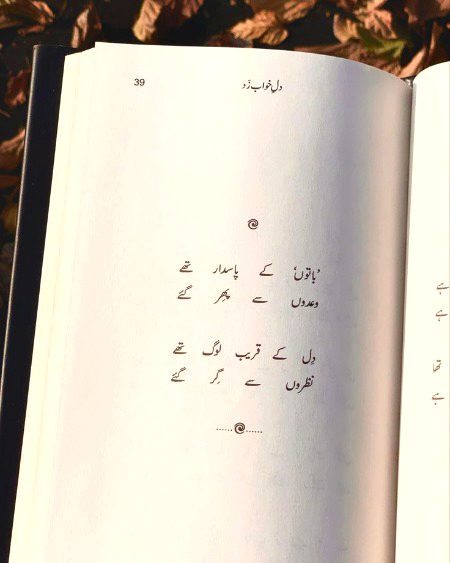 39
دلِ خواب زَد
'باتوں' کے پاسدار تھے
وعدوں سے پھِر گئے
دِل کے قریب لوگ تھے
نظروں سے گِر گئے
ہے
ہے
تھا
ہے